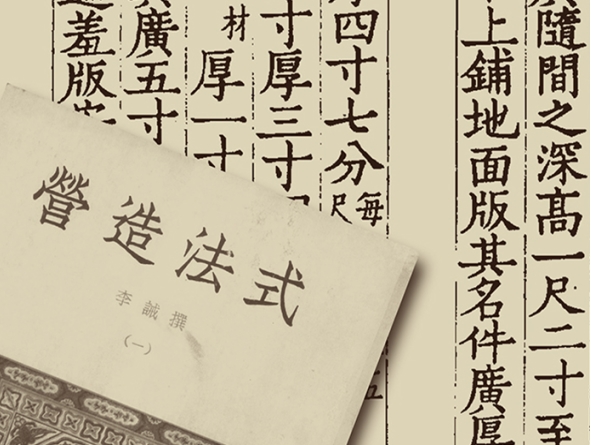 隨間之深高一尺二寸至
上鋪地面版其名件廣厚
四寸七分每尺
寸厚三寸
材厚一寸
廣五寸
羞版
營造法式
李誡撰
(一)